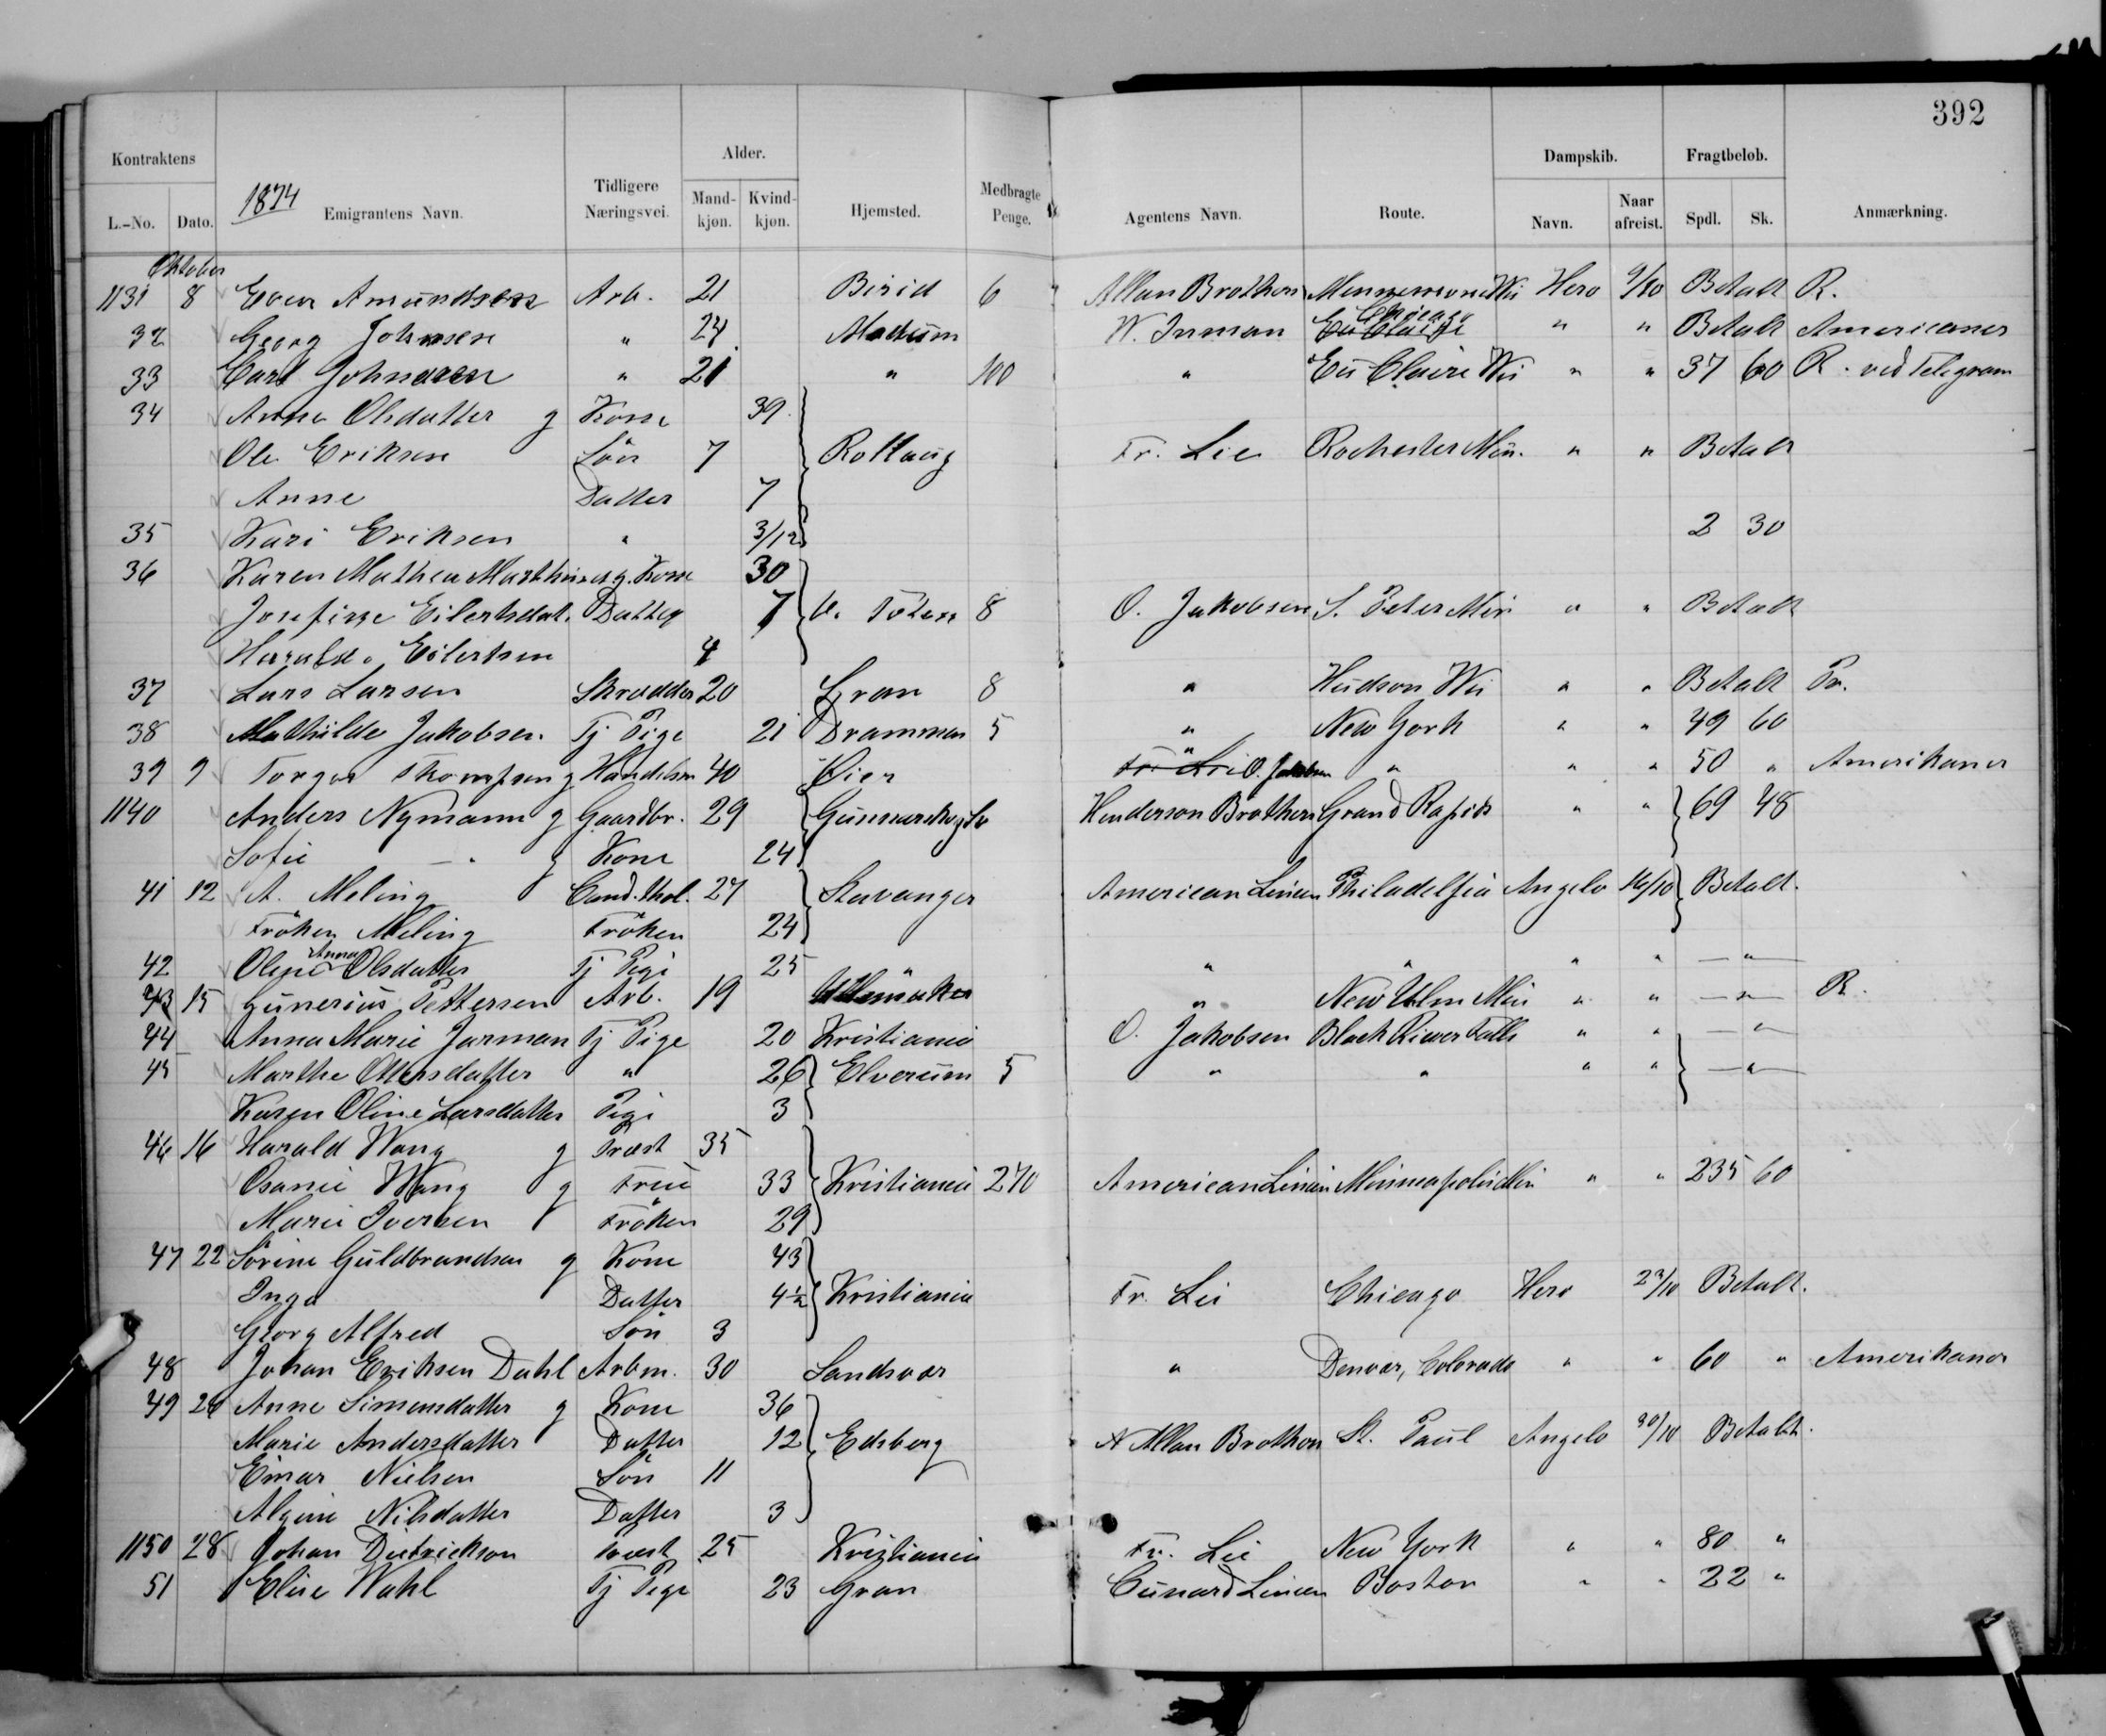 392
Kontraktens Alder. Dampskib. Fragtbeløb.
L.-No. Dato. 1874 Emigrantens Navn. Tidligere Næringsvei. Mand-kjøn. Kvind-kjøn. Hjemsted. Medbragte Penge. Agentens Navn. Route. Navn. Naar afreist. Spdl. Sk. Anmærkning.
Oktober
1131 8 Even Amundsen Arb. 21 Birid 6 Allan Brothers Wis Hero 9/10 Betalt R.
32 Georg Johnsen " 24 Modum W. Inman Chicago " " Betalt Americaner
33 Carl Johnsen " 21 " 100 " Eu Claire Wis " " 37 60 R. ved Telegram
34 Anne Olsdatter g Kone 39
Ole Eriksen Søn 7 Rollaug Fr. Lie Rochester Min. " " Betalt
Anne Datter 7
35 Kari Eriksen " 3/12 2 30
36 Karen Mathea g. Kone 30
Josefine Eilertsdat. Datter 7 V. Toten 8 O. Jakobsen S. Peter Min " " Betalt
Harald Eilertsen 4
37 Lars Larsen Skrædder 20 Gran 8 " Hudson Wis " " Betalt Pr.
38 Mathilde Jakobsen Tj Pige 21 Drammen 5 " New York " " 49 60
39 9 Torger Thompsen g Handelsm 40 Øier Fr. Lie O. Jakobsen " " " 50 " Amerikaner
1140 Anders Nymann g Gaardbr. 29 Henderson Brothers Grand Rapids " " 69 48
Sofie — " g Kone 24
41 12 A. Meling Cand. theol. 27 Stavanger American Linien Philadelfia Angelo 16/10 Betalt.
Frøken Meling Frøken 24
42 Oline Anna Olsdatter Tj Pige 25 " " " " " — " —
43 15 Gunerius Pettersen Arb. 19 Ullensaker " New Ulm Min " " — " — R.
44 Anna Marie Jarmann Tj Pige 20 Kristiania O. Jakobsen Black River Falls " " — " —
45 Marthe Ottersdatter " 26 Elverum 5 " " " " — " —
Karen Oline Larsdatter Pige 3
46 16 Harald Wang g Præst 35
Osanie Wang g Frue 33 Kristiania 270 American Linien Minneapolis Min " " 235 60
Marie Iversen Frøken 29
47 22 Sørine Guldbrandsen g Kone 43
Inga Datter 4½ Kristiania Fr. Lie Chicago Hero 23/10 Betalt.
Georg Alfred Søn 3
48 Johan Eriksen Dahl Arbm. 30 Sandsvær " Denver, Colorado " " 60 " Amerikaner
49 26 Anne Simensdatter g Kone 36
Marie Andersdatter Datter 12 Edsberg Allan Brothers St. Paul Angelo 30/10 Betalt.
Einar Nielsen Søn 11
Nilsdatter Datter 3
1150 28 Johan Diedrickson Præst 25 Kristiania Fr. Lie New York " " 80 "
51 Elise Wahl Tj Pige 23 Gran Cunard Linien Boston " " 22 "